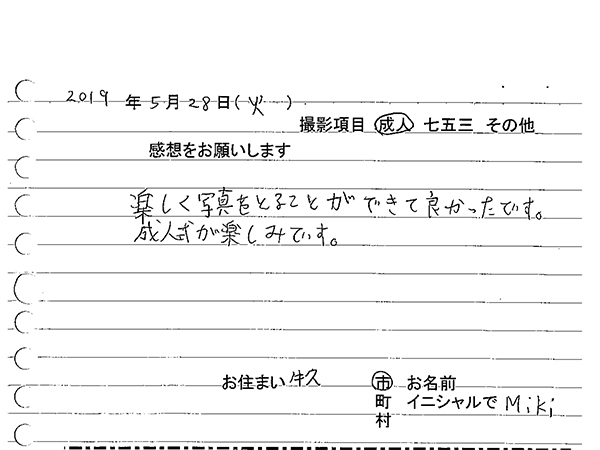 2019 年 5月 28日(火)
撮影項目 成人 七五三 その他
感想をお願いします
楽しく写真をとることができて良かったです。
成人式が楽しみです。
お住まい 牛久 市 お名前
町 イニシャルで Miki
村